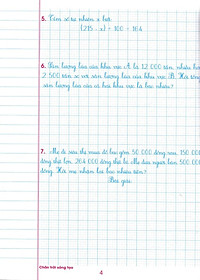 5. Tìm số tự nhiên x biết:
(215 - x) + 100 = 164
6. Sản lượng lúa của khu vực A là 12 000 tấn, nhiều hơn
2 500 tấn so với sản lượng lúa của khu vực B. Hỏi tổng
sản lượng lúa của cả hai khu vực là bao nhiêu?
7. Mẹ đi siêu thị mua đồ hết gồm 50 000 đồng rau, 150 000
đồng thịt lợn, 204 000 đồng thịt bò. Mẹ đưa người bán 500 000
đồng. Hỏi mẹ nhận lại bao nhiêu tiền?
Bài giải
Chân trời sáng tạo
4